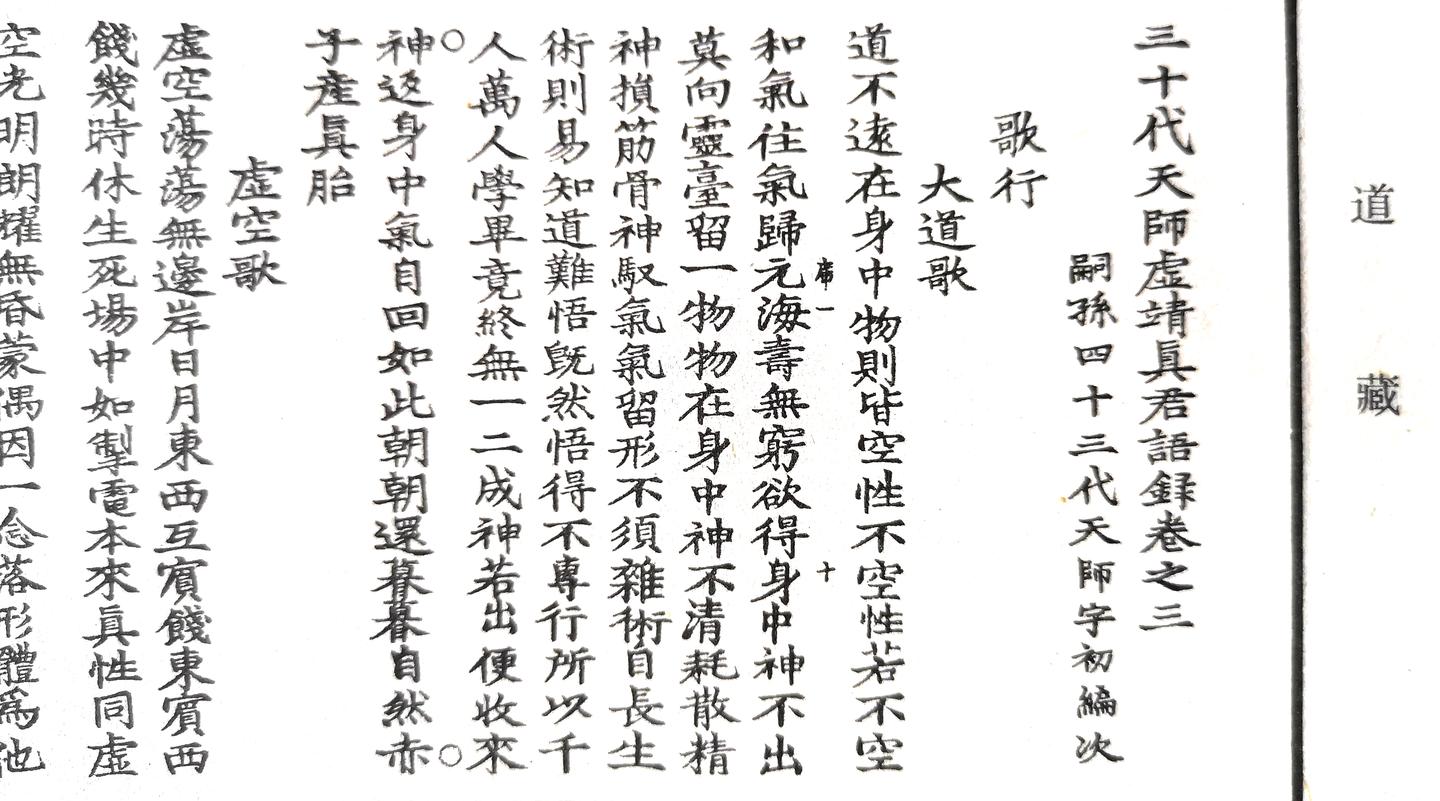 道藏
三十代天師虛靖真君語録卷之三
嗣孫四十三代天師字初編次
歌行
大道歌
道不遠在身中物則皆空性不空性若不空
和氣住氣歸元海壽無窮欲得身中神不出
席一
十
莫向靈臺留一物物在身中神不清耗散精
神損筋骨神馭氣氣留形不須雜術自長生
術則易知道難悟既然悟得不專行所以千
人萬人學畢竟終無一二成神若出便收來
神返身中氣自回如此朝朝還暮暮自然赤
子產真胎
虛空歌
虛空蕩蕩無邊岸日月東西互賓餞東賓西
餞幾時休生死場中如掣電本來真性同虛
空光明朗耀無昏蒙偶因一念落形體為他